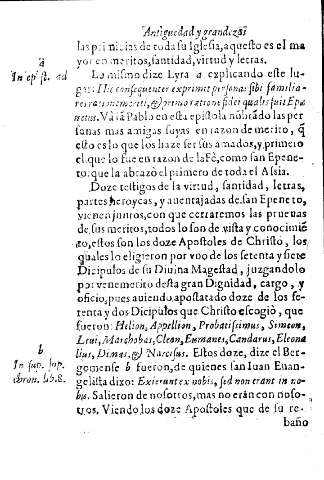 Antiguedad y grandezas
las primicias de toda su Iglesia, aquesto es el ma
yor en meritos, santidad, virtud y letras.
a
In epist. ad
Lo mismo dize Lyra a explicando este lu-
gar: Hic consequenter exprimit personas sibi familia-
res ratione meriti, & primo ratione fidei qualis fuit Epę
netus. Va ia Pablo en esta epistola nõbrãdo las per
sonas mas amigas suyas en razon de merito, q̃
esto es lo que los haze ser sus amados, y primero
el que lo fue en razon de la Fè, como san Epene-
to: que la abrazò el primero de toda el Assia.
Doze testigos de la virtud, santidad, letras,
partes heroycas, y auentajadas de san Epeneto,
vienen juntos, con que cerraremos las prueuas
de sus meritos, todos lo son de vista y conocimiẽ
to, estos son los doze Apostoles de Christo, los
quales lo eligieron por vno de los setenta y siete
Dicipulos de su Diuina Magestad, juzgandolo
por venemerito desta gran Dignidad, cargo, y
oficio, pues auiendo apostatado doze de los se-
tenta y dos Dicipulos que Christo escogiò, que
fueron: Helion, Appellion, Probatissimus, Simeon,
Leui, Marchobas, Cleon, Eumanes, Candarus, Eleona
lius, Dimas, & Narcisus. Estos doze, dize el Ber-
b
In sup. sup.
chron. lib. 8.
gomense b fueron, de quienes san Iuan Euan-
gelista dixo: Exierunt ex nobis, sed non erant in no-
bis. Salieron de nosotros, mas no eran con noso-
tros. Viendo los doze Apostoles que de su re-
baño